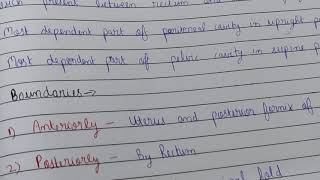 such present between rectum and
Most dependent part of peritoneal cavity in upright p
Most dependent part of pelvic cavity in supine p
Boundaries→
1) Anteriorly - Uterus and posterior fornix of
2) Posteriorly - By Rectum
fold